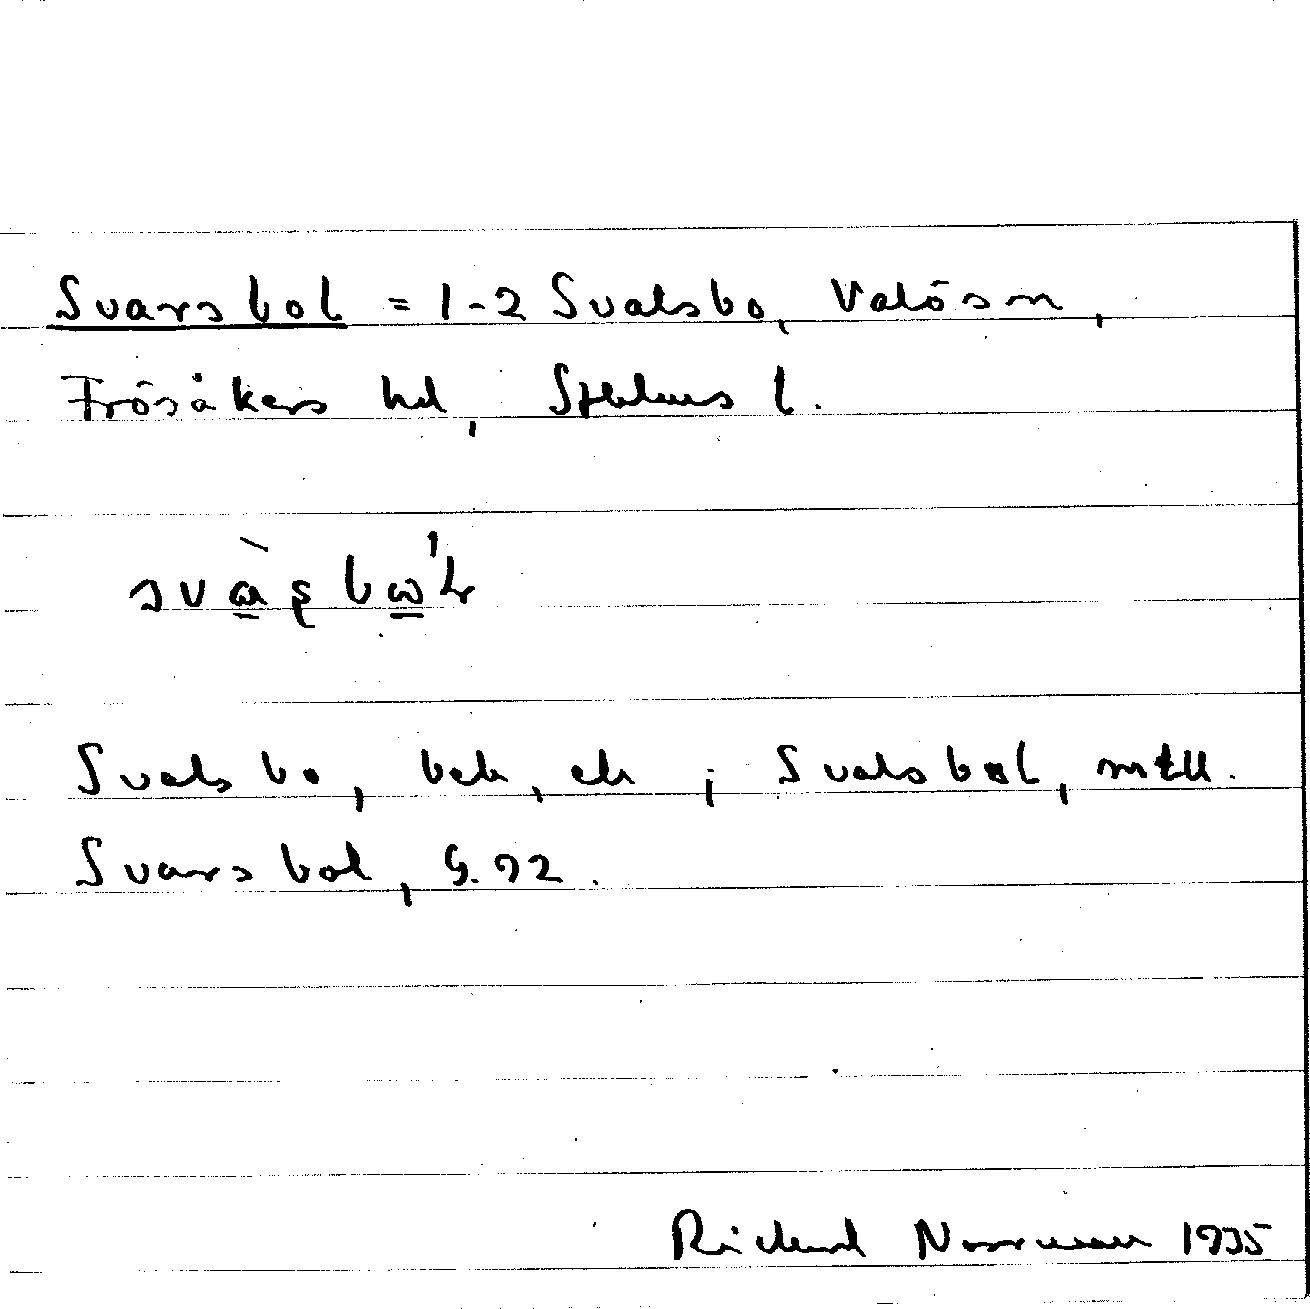 Svarsbol = 1-2 Svalsbo, Valö sn,
Frösåkers hd, Sthlms l.
svàʂbω'ɫ
Svalsbo, bek, ek; Svalsbol, mtll.
Svarsbol, G. 92.
Rickard Norrman 1935